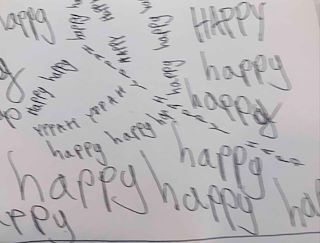 happy
happy
happy
happy
HAPPY
happy
happy
happy
happy
happy
HAPPY
happy
happy
happy
happy
happy
happy
ppy